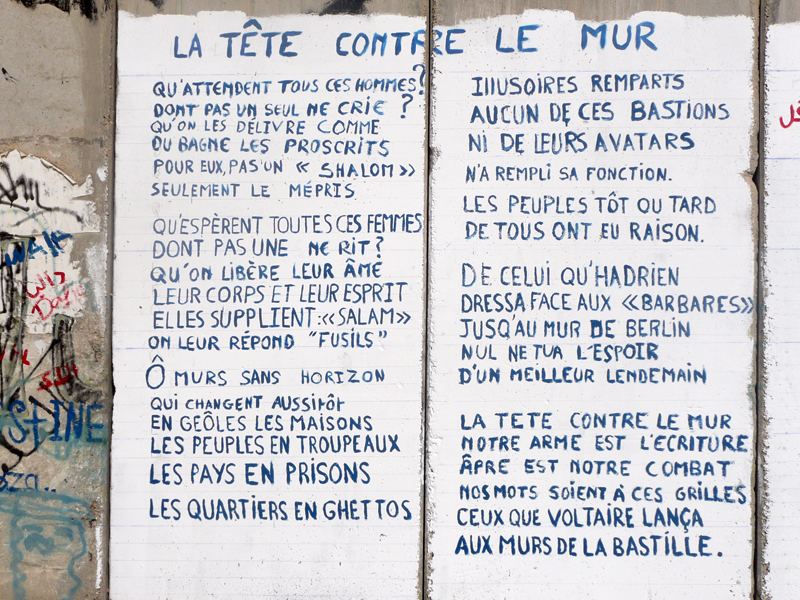 LA TÊTE CONTRE LE MUR
QU'ATTENDENT TOUS CES HOMMES?
DONT PAS UN SEUL NE CRIE ?
QU'ON LES DÉLIVRE COMME
DU BAGNE LES PROSCRITS
POUR EUX, PAS UN « SHALOM »
SEULEMENT LE MÉPRIS
QU'ESPÈRENT TOUTES CES FEMMES
DONT PAS UNE NE RIT?
QU'ON LIBÈRE LEUR ÂME
LEUR CORPS ET LEUR ESPRIT
ELLES SUPPLIENT: «SALAM»
ON LEUR RÉPOND "FUSILS"
Ô MURS SANS HORIZON
QUI CHANGENT AUSSITÔT
EN GEÔLES LES MAISONS
LES PEUPLES EN TROUPEAUX
LES PAYS EN PRISONS
LES QUARTIERS EN GHETTOS
ILLUSOIRES REMPARTS
AUCUN DE CES BASTIONS
NI DE LEURS AVATARS
N'A REMPLI SA FONCTION.
LES PEUPLES TÔT OU TARD
DE TOUS ONT EU RAISON.
DE CELUI QU'HADRIEN
DRESSA FACE AUX «BARBARES»
JUSQ'AU MUR DE BERLIN
NUL NE TUA L'ESPOIR
D'UN MEILLEUR LENDEMAIN
LA TETE CONTRE LE MUR
NOTRE ARME EST L'ECRITURE
ÂPRE EST NOTRE COMBAT
NOS MOTS SOIENT À CES GRILLES
CEUX QUE VOLTAIRE LANÇA
AUX MURS DE LA BASTILLE.